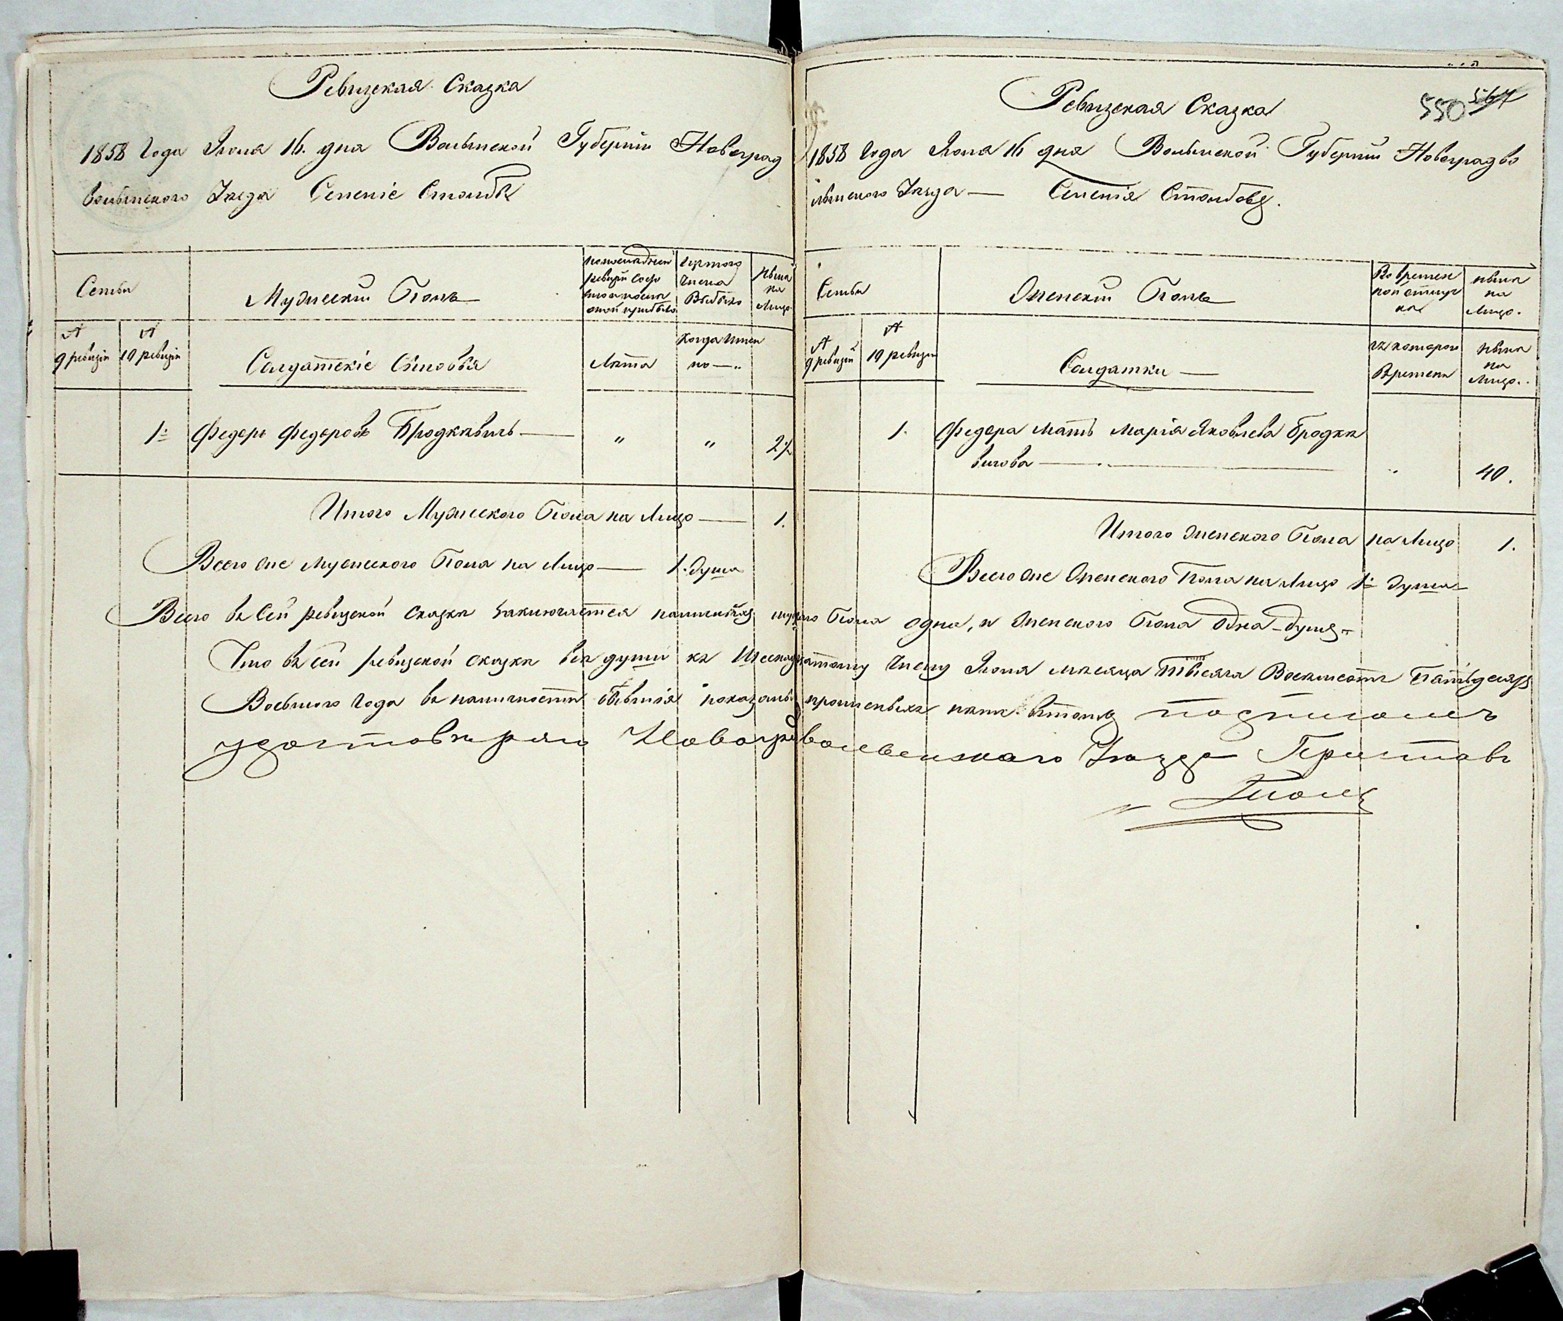 Ревизская Сказка
1858 Года Июня 16. дня Волынской Губернiи Новоград
волынского Уезда Селенiе Столбы
Семьи
Мужеский Полъ
Изъ того
числа
Выбыло
ныне
на
Лицо
№
9 ревизiи
№
10 ревизiи
Солдатскiе Сыновья
Лета
Когда имен
но — „
1. Федоръ Федоровъ Бродкавичь — „ „ 27
Итого Мужеского Пола на Лицо — 1.
Всего же Мужеского Пола на Лицо — 1. душа
Ревизская Сказка
550 567
1858 Года Июня 16 дня Волынской Губернiи Новоградво
лынского Уезда — Селенiя Столбовъ.
Семьи
Женский Полъ
Во времен
ной отлуч
ке
ныне
на
Лицо.
№
9 ревизiи
№
10 ревизiи
Солдатки —
съ котораго
Времени
ныне
на
Лицо..
1. Федора мать Марiя Яковлева Бродка
вичова — 40.
Итого женского Пола на Лицо 1.
Всего же Женского Пола на Лицо 1 душа
Всего въ сей ревизской сказке заключается наличныхъ муж̃го Пола одна, и Женского Пола одна душа
Что въ сей ревизской сказке все души къ Шеснадцатому числу Июня месяца Тысяча Восемьсотъ Пятьдесятъ
Восьмого Года въ наличности бывшiя показаны и прописныхъ нетъ. въ томъ подписомъ
удостоверяю Новоградволынского Уезда Приставъ